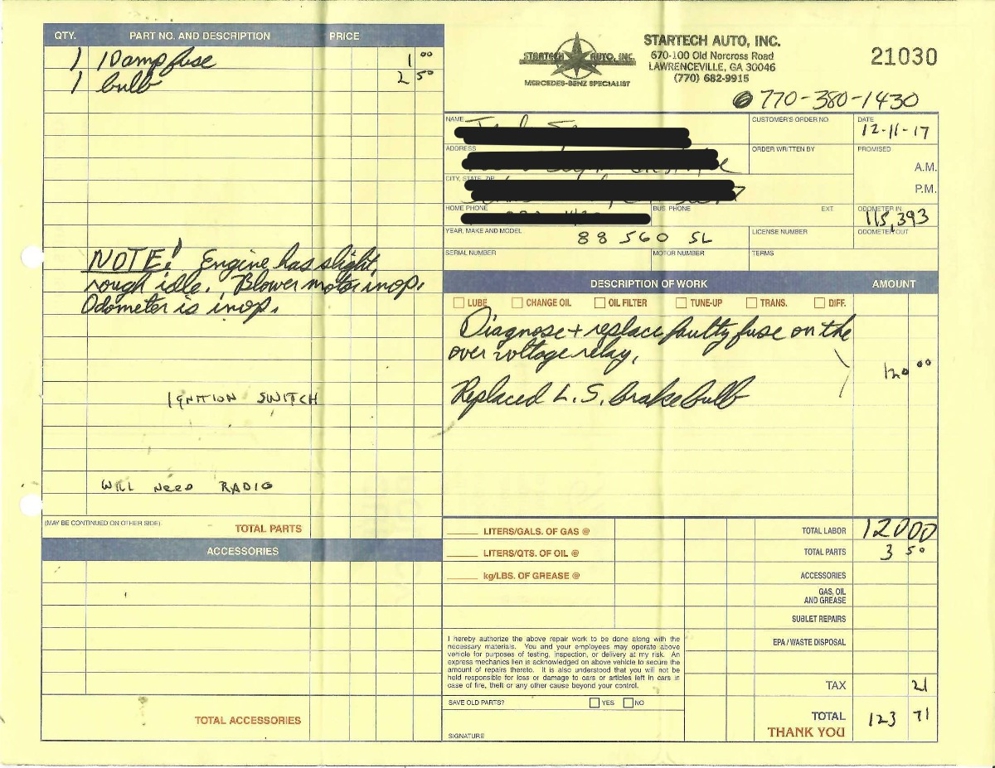 QTY. PART NO. AND DESCRIPTION PRICE
1 10 amp fuse 1 00
1 bulb 2 50
NOTE! Engine has slight
rough idle. Blower motor inop.
Odometer is inop.
IGNITION SWITCH
WILL NEED RADIO
(MAY BE CONTINUED ON OTHER SIDE) TOTAL PARTS
ACCESSORIES
TOTAL ACCESSORIES
STARTECH AUTO, INC.
MERCEDES-BENZ SPECIALIST
STARTECH AUTO, INC.
670-100 Old Norcross Road
LAWRENCEVILLE, GA 30046
(770) 682-9915
21030
770-380-1430
NAME CUSTOMER'S ORDER NO. DATE
12-11-17
ADDRESS ORDER WRITTEN BY PROMISED
A.M.
CITY, STATE, P.M.
HOME PHONE BUS. PHONE EXT. ODOMETER IN
115,393
YEAR, MAKE AND MODEL LICENSE NUMBER ODOMETER OUT
88 560 SL
SERIAL NUMBER MOTOR NUMBER TERMS
DESCRIPTION OF WORK AMOUNT
LUBE CHANGE OIL OIL FILTER TUNE-UP TRANS. DIFF.
Diagnose + replace faulty fuse on the
over voltage relay.
120 00
Replaced L.S. brake bulb
LITERS/GALS. OF GAS @ TOTAL LABOR 120 00
LITERS/QTS. OF OIL @ TOTAL PARTS 3 50
kg/LBS. OF GREASE @ ACCESSORIES
GAS, OIL
AND GREASE
SUBLET REPAIRS
EPA / WASTE DISPOSAL
I hereby authorize the above repair work to be done along with the
necessary materials. You and your employees may operate above
vehicle for purposes of testing, inspection, or delivery at my risk. An
express mechanics lien is acknowledged on above vehicle to secure the
amount of repairs thereto. It is also understood that you will not be
held responsible for loss or damage to cars or articles left in cars in
case of fire, theft or any other cause beyond your control.
TAX 21
SAVE OLD PARTS? YES NO
TOTAL 123 71
THANK YOU
SIGNATURE